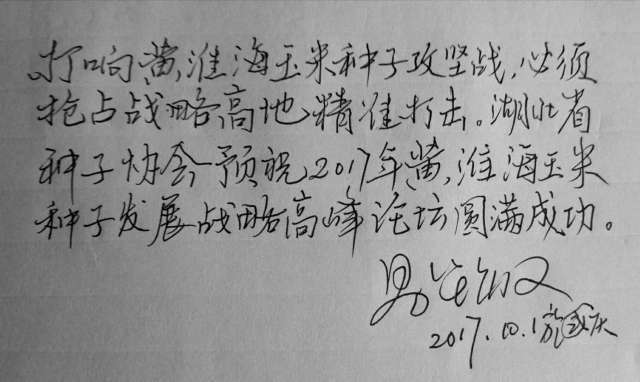 打响黄淮海玉米种子攻坚战,必须
抢占战略高地精准打击。湖北省
种子协会预祝2017年黄淮海玉米
种子发展战略高峰论坛圆满成功。
2017.10.1 国庆